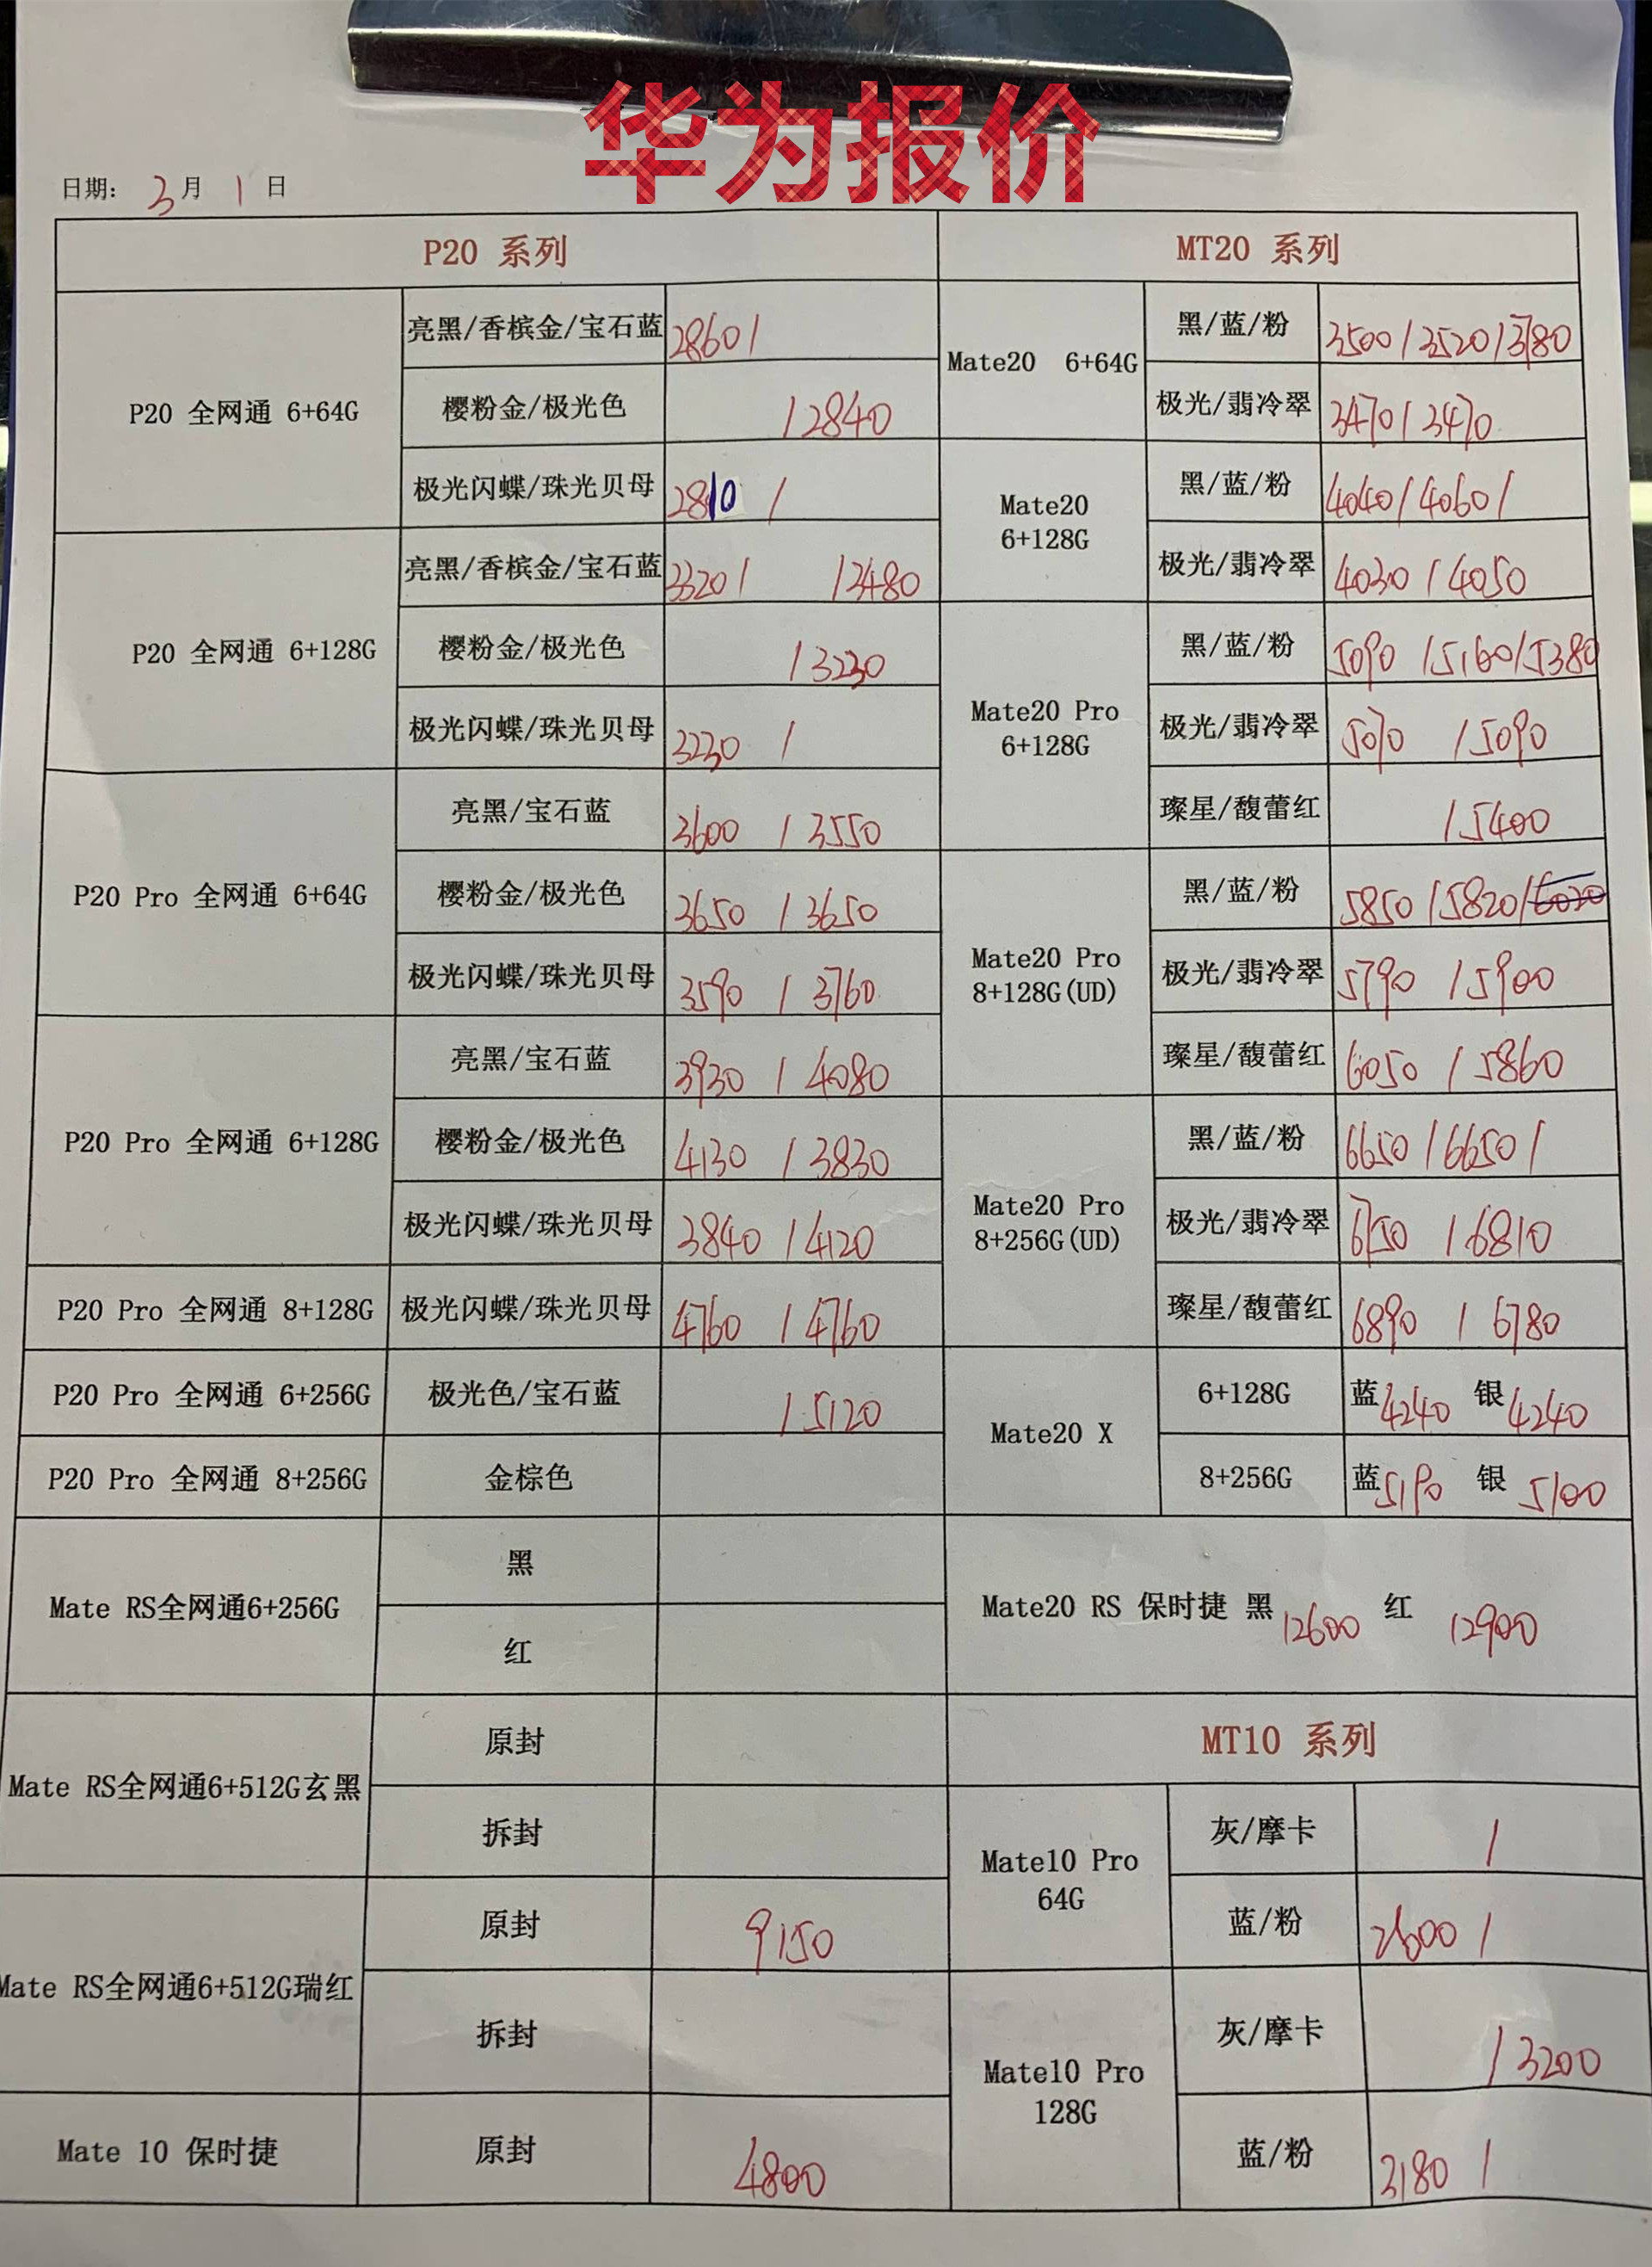 华为报价
日期: 3月 1 日
P20 系列
MT20 系列
P20 全网通 6+64G
亮黑/香槟金/宝石蓝 2860/
樱粉金/极光色 /2840
极光闪蝶/珠光贝母 2810 /
P20 全网通 6+128G
亮黑/香槟金/宝石蓝 3320/ /3480
樱粉金/极光色 /3230
极光闪蝶/珠光贝母 3230 /
P20 Pro 全网通 6+64G
亮黑/宝石蓝 3600 / 3550
樱粉金/极光色 3650 / 3650
极光闪蝶/珠光贝母 3590 / 3760
P20 Pro 全网通 6+128G
亮黑/宝石蓝 3930 / 4080
樱粉金/极光色 4130 / 3830
极光闪蝶/珠光贝母 3840 / 4120
P20 Pro 全网通 8+128G 极光闪蝶/珠光贝母 4760 / 4760
P20 Pro 全网通 6+256G 极光色/宝石蓝 / 5120
P20 Pro 全网通 8+256G 金棕色
Mate RS全网通6+256G
黑
红
Mate RS全网通6+512G玄黑
原封
拆封
Mate RS全网通6+512G瑞红
原封 9150
拆封
Mate 10 保时捷 原封 4800
Mate20 6+64G
黑/蓝/粉 3500/3520/3780
极光/翡冷翠 3470/3470
Mate20
6+128G
黑/蓝/粉 4040/4060/
极光/翡冷翠 4030 / 4050
Mate20 Pro
6+128G
黑/蓝/粉 5090 /5160/5380
极光/翡冷翠 5070 /5090
璨星/馥蕾红 /5400
Mate20 Pro
8+128G(UD)
黑/蓝/粉 5850 /5820/6020
极光/翡冷翠 5790 /5900
璨星/馥蕾红 6050 / 5860
Mate20 Pro
8+256G(UD)
黑/蓝/粉 6650 /6650 /
极光/翡冷翠 6750 / 6810
璨星/馥蕾红 6890 / 6780
Mate20 X
6+128G 蓝4240 银4240
8+256G 蓝5190 银 5100
Mate20 RS 保时捷 黑 12600 红 12900
MT10 系列
Mate10 Pro
64G
灰/摩卡 /
蓝/粉 2600 /
Mate10 Pro
128G
灰/摩卡 / 3200
蓝/粉 3180 /